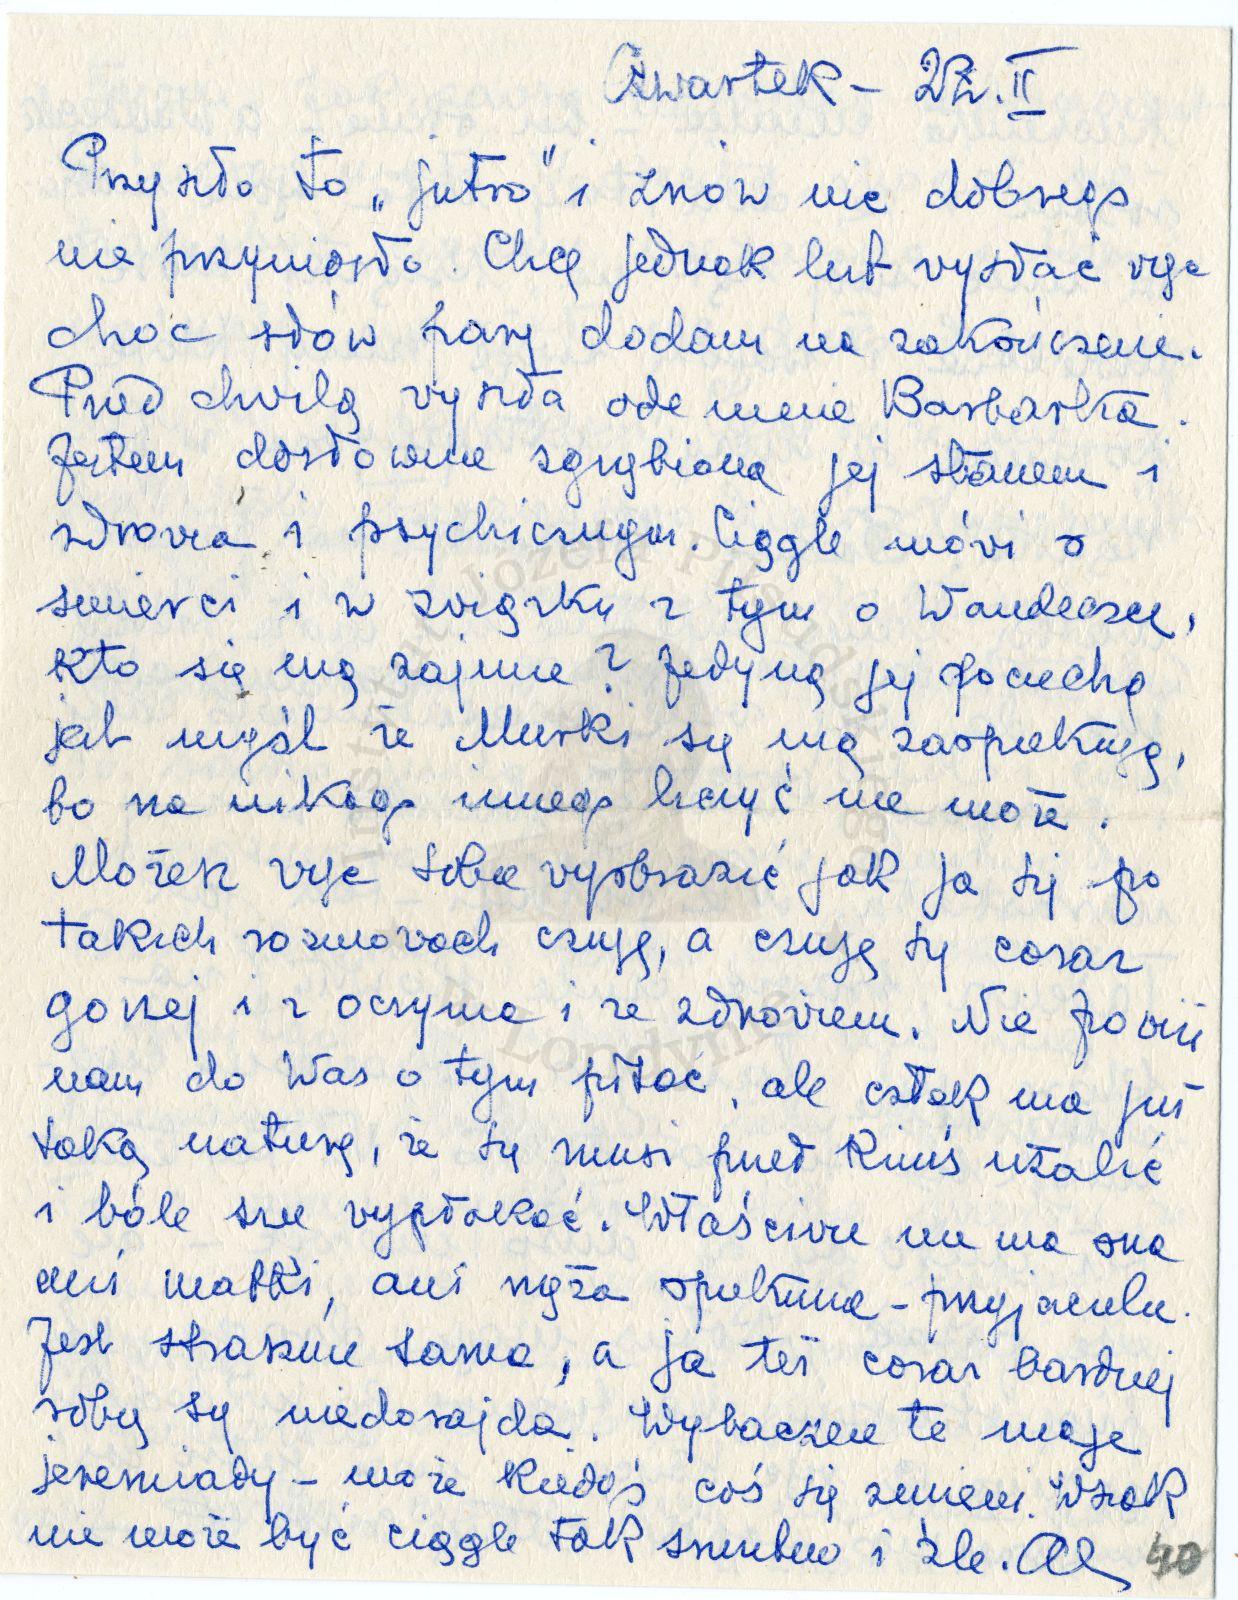 Czwartek – 22.II
Przyszło to „jutro" i znów nic dobrego
nie przyniosło. Chcę jednak list wysłać więc
choć słów parę dodam na zakończenie.
Przed chwilą wyszła ode mnie Barbarka.
Jestem dosłownie zgnębiona jej stanem i
zdrowia i psychicznym. Ciągle mówi o
śmierci i w związku z tym o Wandeczce,
kto się nią zajmie? Jedyną jej pociechą
jest myśl że Murki się nią zaopiekują,
bo na nikogo innego liczyć nie może.
Możesz więc sobie wyobrazić jak ja się po
takich rozmowach czuję, a czuję się coraz
gorzej i z oczyma i ze zdrowiem. Nie powin
nam do Was o tym pisać, ale człek ma już
taką naturę, że się musi przed kimś użalić
i bóle swe wypłakać. Właściwie nie ma ona
ani matki, ani męża opiekuna – przyjaciela.
Jest strasznie sama, a ja też coraz bardziej
robię się niedorajda. Wybaczcie te moje
jeremiady – może kiedyś coś się zmieni. Wszak
nie może być ciągle tak smutno i źle. Al
40
Instytut Józefa Piłsudskiego
w Londynie